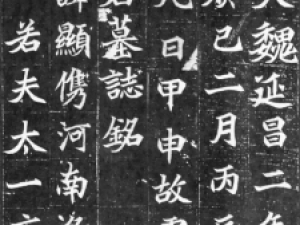 大魏延昌二年
巳二月丙辰
九日甲申故
君墓誌銘
諱顯儁河南洛
若夫太一